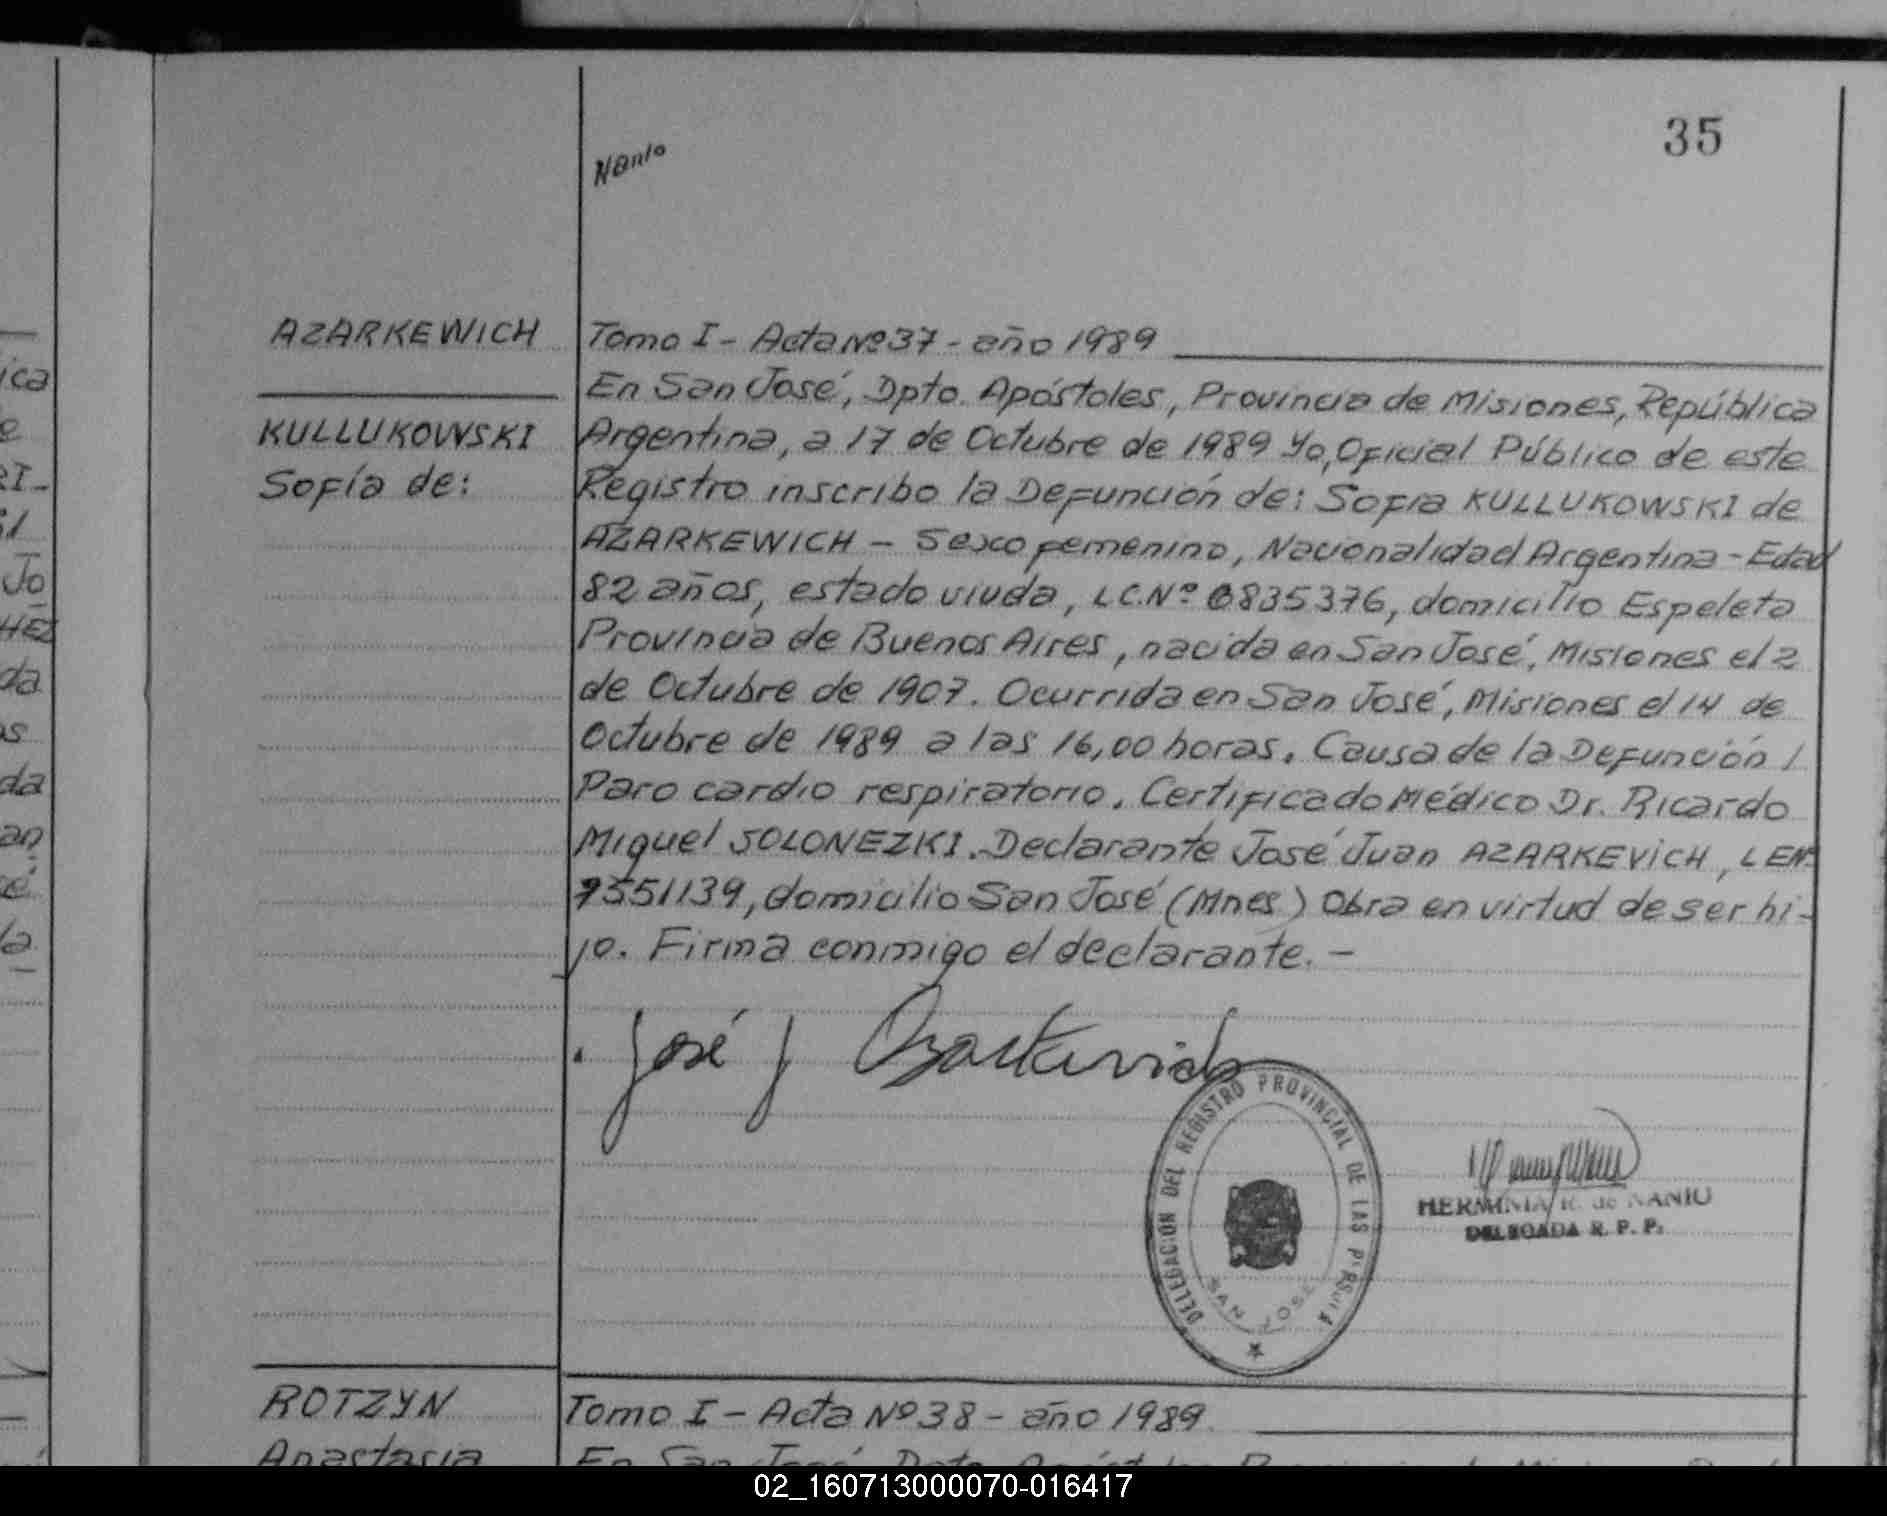 35
Nanio
AZARKEWICH
KULLUKOWSKI
Sofía de:
Tomo I - Acta Nº 37 - año 1989
En San José, Dpto. Apóstoles, Provincia de Misiones, República
Argentina, a 17 de Octubre de 1989 Yo, Oficial Público de este
Registro inscribo la Defunción de: Sofía KULLUKOWSKI de
AZARKEWICH - Sexo femenino, Nacionalidad Argentina - Edad
82 años, estado viuda, LC.Nº 6835376, domicilio Espeleta
Provincia de Buenos Aires, nacida en San José, Misiones el 2
de Octubre de 1907. Ocurrida en San José, Misiones el 14 de
Octubre de 1989 a las 16,00 horas. Causa de la Defunción /
Paro cardio respiratorio. Certificado Médico Dr. Ricardo
Miguel SOLONEZKI. Declarante José Juan AZARKEVICH, LEN.
7551139, domicilio San José (Mnes) Obra en virtud de ser hi-
jo. Firma conmigo el declarante. -
José J Azarkevich
DELEGACION DEL REGISTRO PROVINCIAL DE LAS
SAN JOSE
HERMINIA R. de NANIO
DELEGADA R. P. P.
ROTZYN
Anastacia
Tomo I - Acta Nº 38 - año 1989
En San José, Dpto. Apóstoles,
ica
e
Jo
HEZ
da
os
da
an
la
02_160713000070-016417